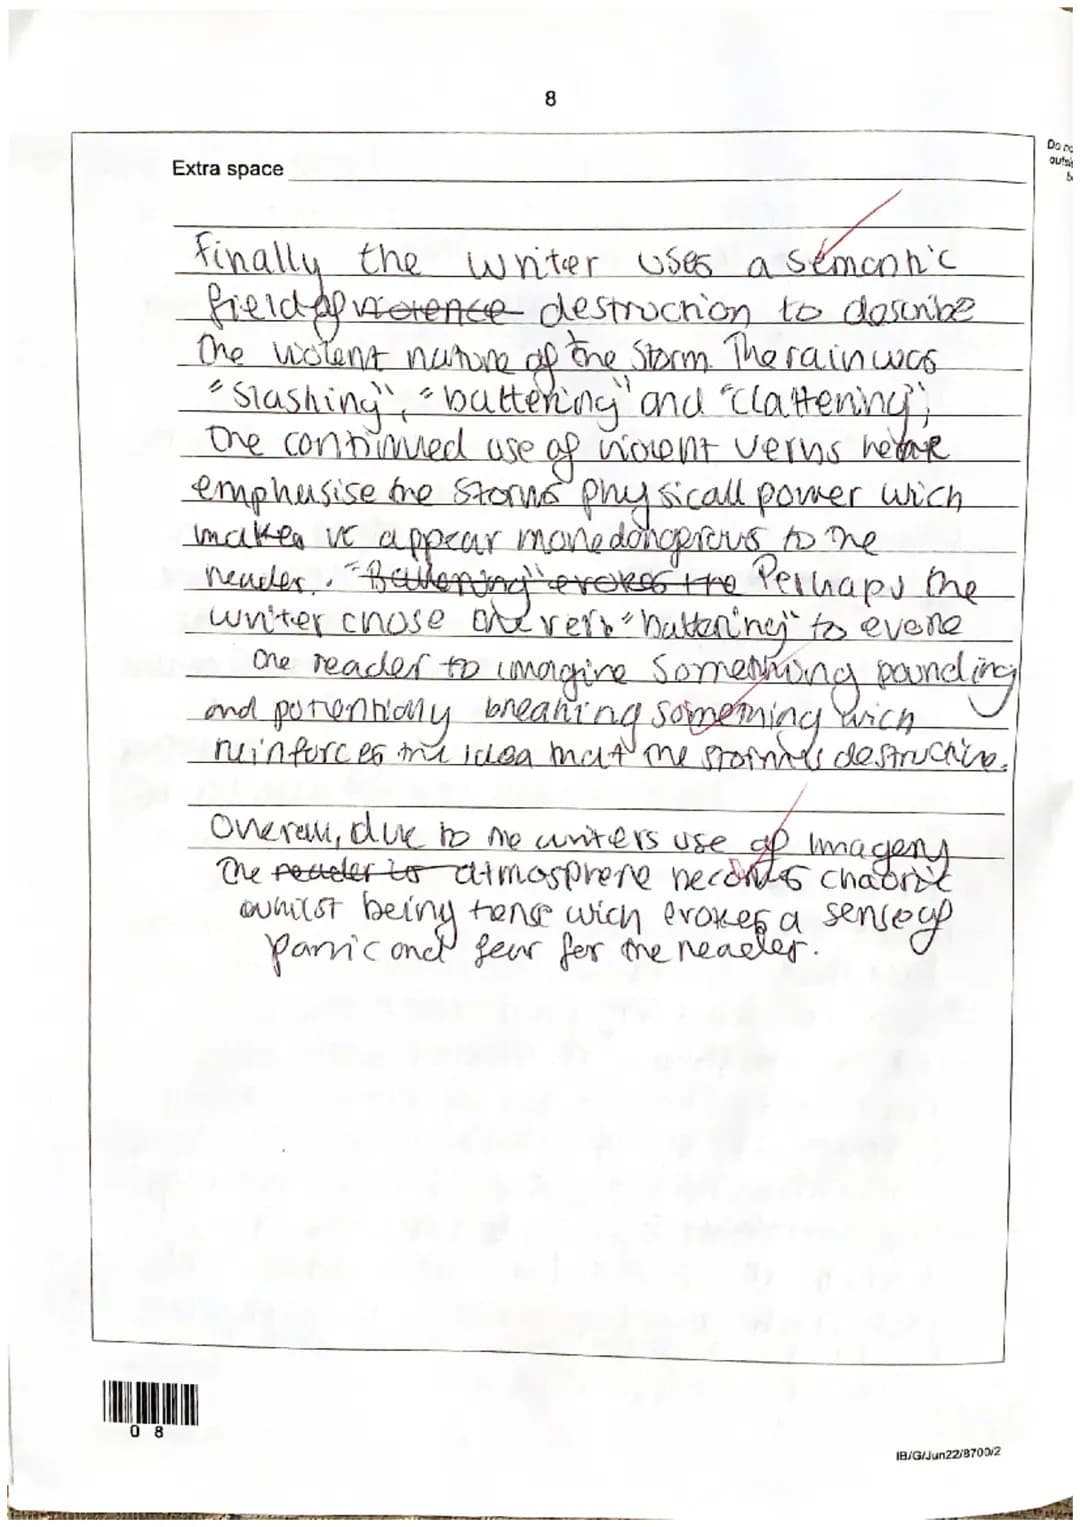 8
Do no
outsi
b
Extra space
Finally the writer uses a semantic
field of violence destruction to describe
the violent nature of the storm. The rain was
"slashing", "battering" and "clattering",
the continued use of violent verns here
emphusise the storms physicall power wich
makes it appear more dongerous to the
reader. "Battering" evokes the Perhaps the
writer chose the verb "battering" to evoke
the reader to imagine something pounding
and potentially breaking something wich
reinforces the idea that the storm is destructive.
Overall, due to the writers use of imagery
The reader to atmosphere becomes chaotic
whilst being tense wich evokes a sense of
panic and fear for the reader.
0 8
IB/G/Jun22/8700/2